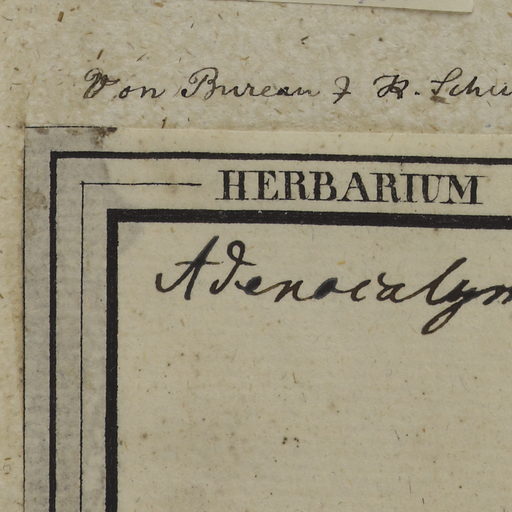 Von Bureau & K. Schu
HERBARIUM
Adenocalym